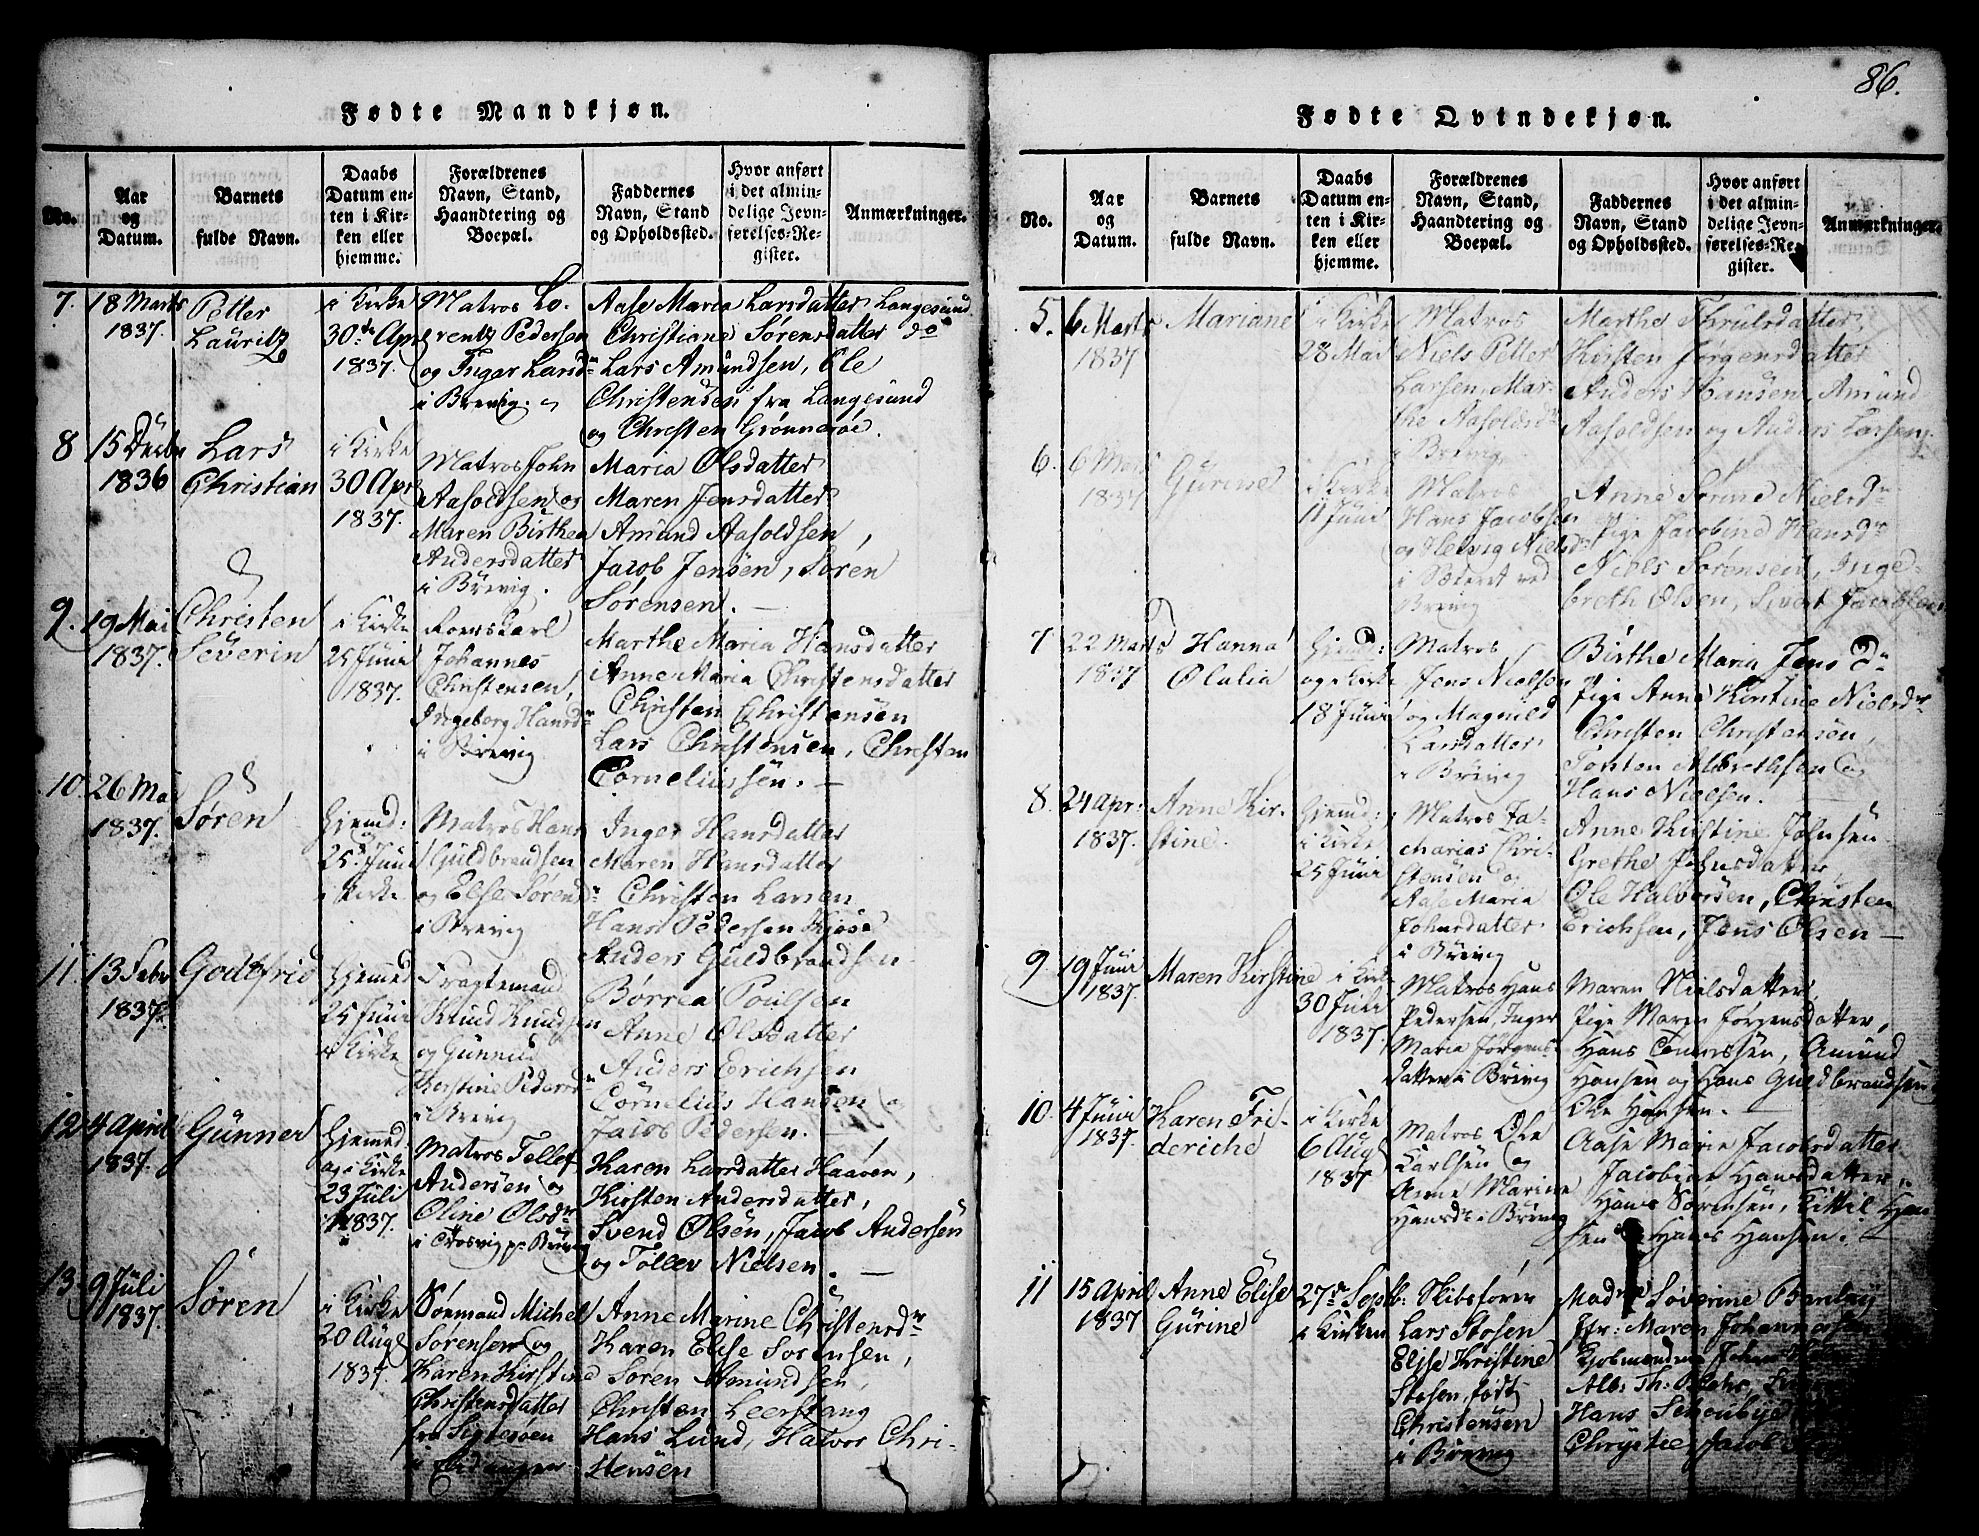 86.
Fødte Mandkjøn.
No.
Aar
og
Datum.
Barnets
fulde Navn.
Daabs
Datum en-
ten i Kir-
ken eller
hjemme.
Forældrenes
Navn, Stand,
Haandtering og
Boepæl.
Faddernes
Navn, Stand
og Opholdssted.
Hvor anført
i det almin-
delige Jevn-
førelses-Re-
gister.
Anmærkninger.
7.
18 Marts
1837.
Petter
Lauritz
i Kirke
30te Apr
1837.
Matros Lo-
rentz Pedersen
og Inger Larsd.
i Brevig.
Aase Maria Larsdatter Langesund
Christiane Sørensdatter do
Lars Amundsen, Ole
Christensen fra Langesund
og Christen Grønnerøe.
8
15 Decbr
1836
Lars
Christian
i Kirke
30 Apr
1837.
Matros John
Aasoldsen og
Maren Birthea
Andersdatter
i Brevig.
Maria Olsdatter
Maren Jensdatter
Amund Aasoldsen,
Jacob Jensen, Søren
Sørensen.
9.
19 Mai
1837.
Christen
Severin
i Kirke
25 Juni
1837.
Roerskarl
Johannes
Christensen,
Ingeborg Hansdr
i Brevig
Marthe Maria Hansdatter
Anne Maria Christensdatter
Christen Christensen
Lars Christensen, Christen
Corneliussen.
10.
26 Mai
1837.
Søren
Hjemd:
25 Juni
i Kirke
Matros Hans
Guldbrandsen
og Else Sørensd
i Brevig
Inger Hansdatter
Maren Hansdatter
Christen Larsen
Hans Pedersen
Anders Guldbrandsen
11.
13 Febr
1837.
Godtfrid
Hjemd
25 Juni
i Kirke
Fragtemand
Knud Knudsen
og Gunnild
Kirstine Pedersd
i Brevig
Børrea Poulsen
Anne Olsdatter
Anders Erichsen
Cornelius Hansen og
Jacob Pedersen.
12
4 April
1837.
Gunner
Hjemd
og i Kirke
23 Juli
1837.
Matros Tellef
Andersen og
Oline Olsdr
i Brevig
Karen Larsdatter Haaven,
Kirsten Andersdatter,
Svend Olsen, Jacob Andersen
og Tollev Nielsen.
13
9 Juli
1837.
Søren
i Kirke
20 Aug
1837.
Sømand Michel
Sørensen og
Karen Kirstine
Christensdatter
i Eidanger
Anne Marine Christensdr
Karen Elise Sørensen,
Søren Amundsen,
Christen Leerstang
Hans Lund, Halvor Chri-
stensen
Fødte Qvindekjøn.
No.
Aar
og
Datum.
Barnets
fulde Navn.
Daabs
Datum en-
ten i Kir-
ken eller
hjemme.
Forældrenes
Navn, Stand,
Haandtering og
Boepæl.
Faddernes
Navn, Stand
og Opholdssted.
Hvor anført
i det almin-
delige Jevn-
førelses-Re-
gister.
Anmærkninger.
5.
6 Marts
1837
Mariane
i Kirke
28 Mai
Matros
Niels Petter
Larsen, Mar-
the Aasoldsdr
i Brevig
Marthe Thrulsdatter,
Kirsten Jørgensdatter
Anders Hansen, Amund
Aasoldsen og Anders Larsen.
6.
6 Mars
1837
Gurine
i Kirke
11 Juni
Matros
Hans Jacobsen
og Helvig Nielsdr
ved
Brevig
Anne Sørine Nielsdr
Pige Jacobine Hansdr
Niels Sørensen, Inge-
breth Olsen, Jacobsen
7
22 Marts
1837
Hanna
Olalia
Hjemd:
og i Kirke
18 Juni
Matros
Jens Nielsen
og Magnild
Larsdatter
i Brevig
Birthe Maria Jens Dr
Pige Anne Kirstine Nielsdr
Christen Christensen,
Albrethsen og
Hans Nielsen.
8.
24 Apr:
1837.
Anne Kir-
stine.
Hjemd:
i Kirke
25 Juni
Matros Za-
charias Chri-
stensen og
Aase Maria
Johnsdatter
i Brevig
Anne Kirstine Johnsen
Grethe Johnsdatter,
Ole Halvorsen, Christen
Erichsen, Jens Olsen
9
19 Juni
1837.
Maren Kirstine
i Kirke
30 Juli
1837.
Matros Hans
Pedersen, Inger
Maria Jørgens-
datter i Brevig
Maren Nielsdatter,
Pige Maren Jørgensdatter,
Hans Amund
Hansen og Hans Guldbrandsen
Ole Hansen.
10.
4 Juni
1837.
Karen Fri-
deriche
i Kirke
6 Aug
1837
Matros Ole
Carlsen og
Anne Marine
Hansdr i Brevig
Aase Marie Jacobsdatter
Jacobine Hansdatter,
Hans Sørensen, Kittil Han-
sen Hans Hansen.
11
15 April
1837
Anne Elise
Gurine
27de Septb:
i Kirken
Skibsfører
Lars Stosen
Elise Kristine
Stosen, født
Christensen
i Brevig
Madme Søverine
Jfr: Maren Johannesen
Kjøbmændene
Alb: Th:
Hans
Jacob